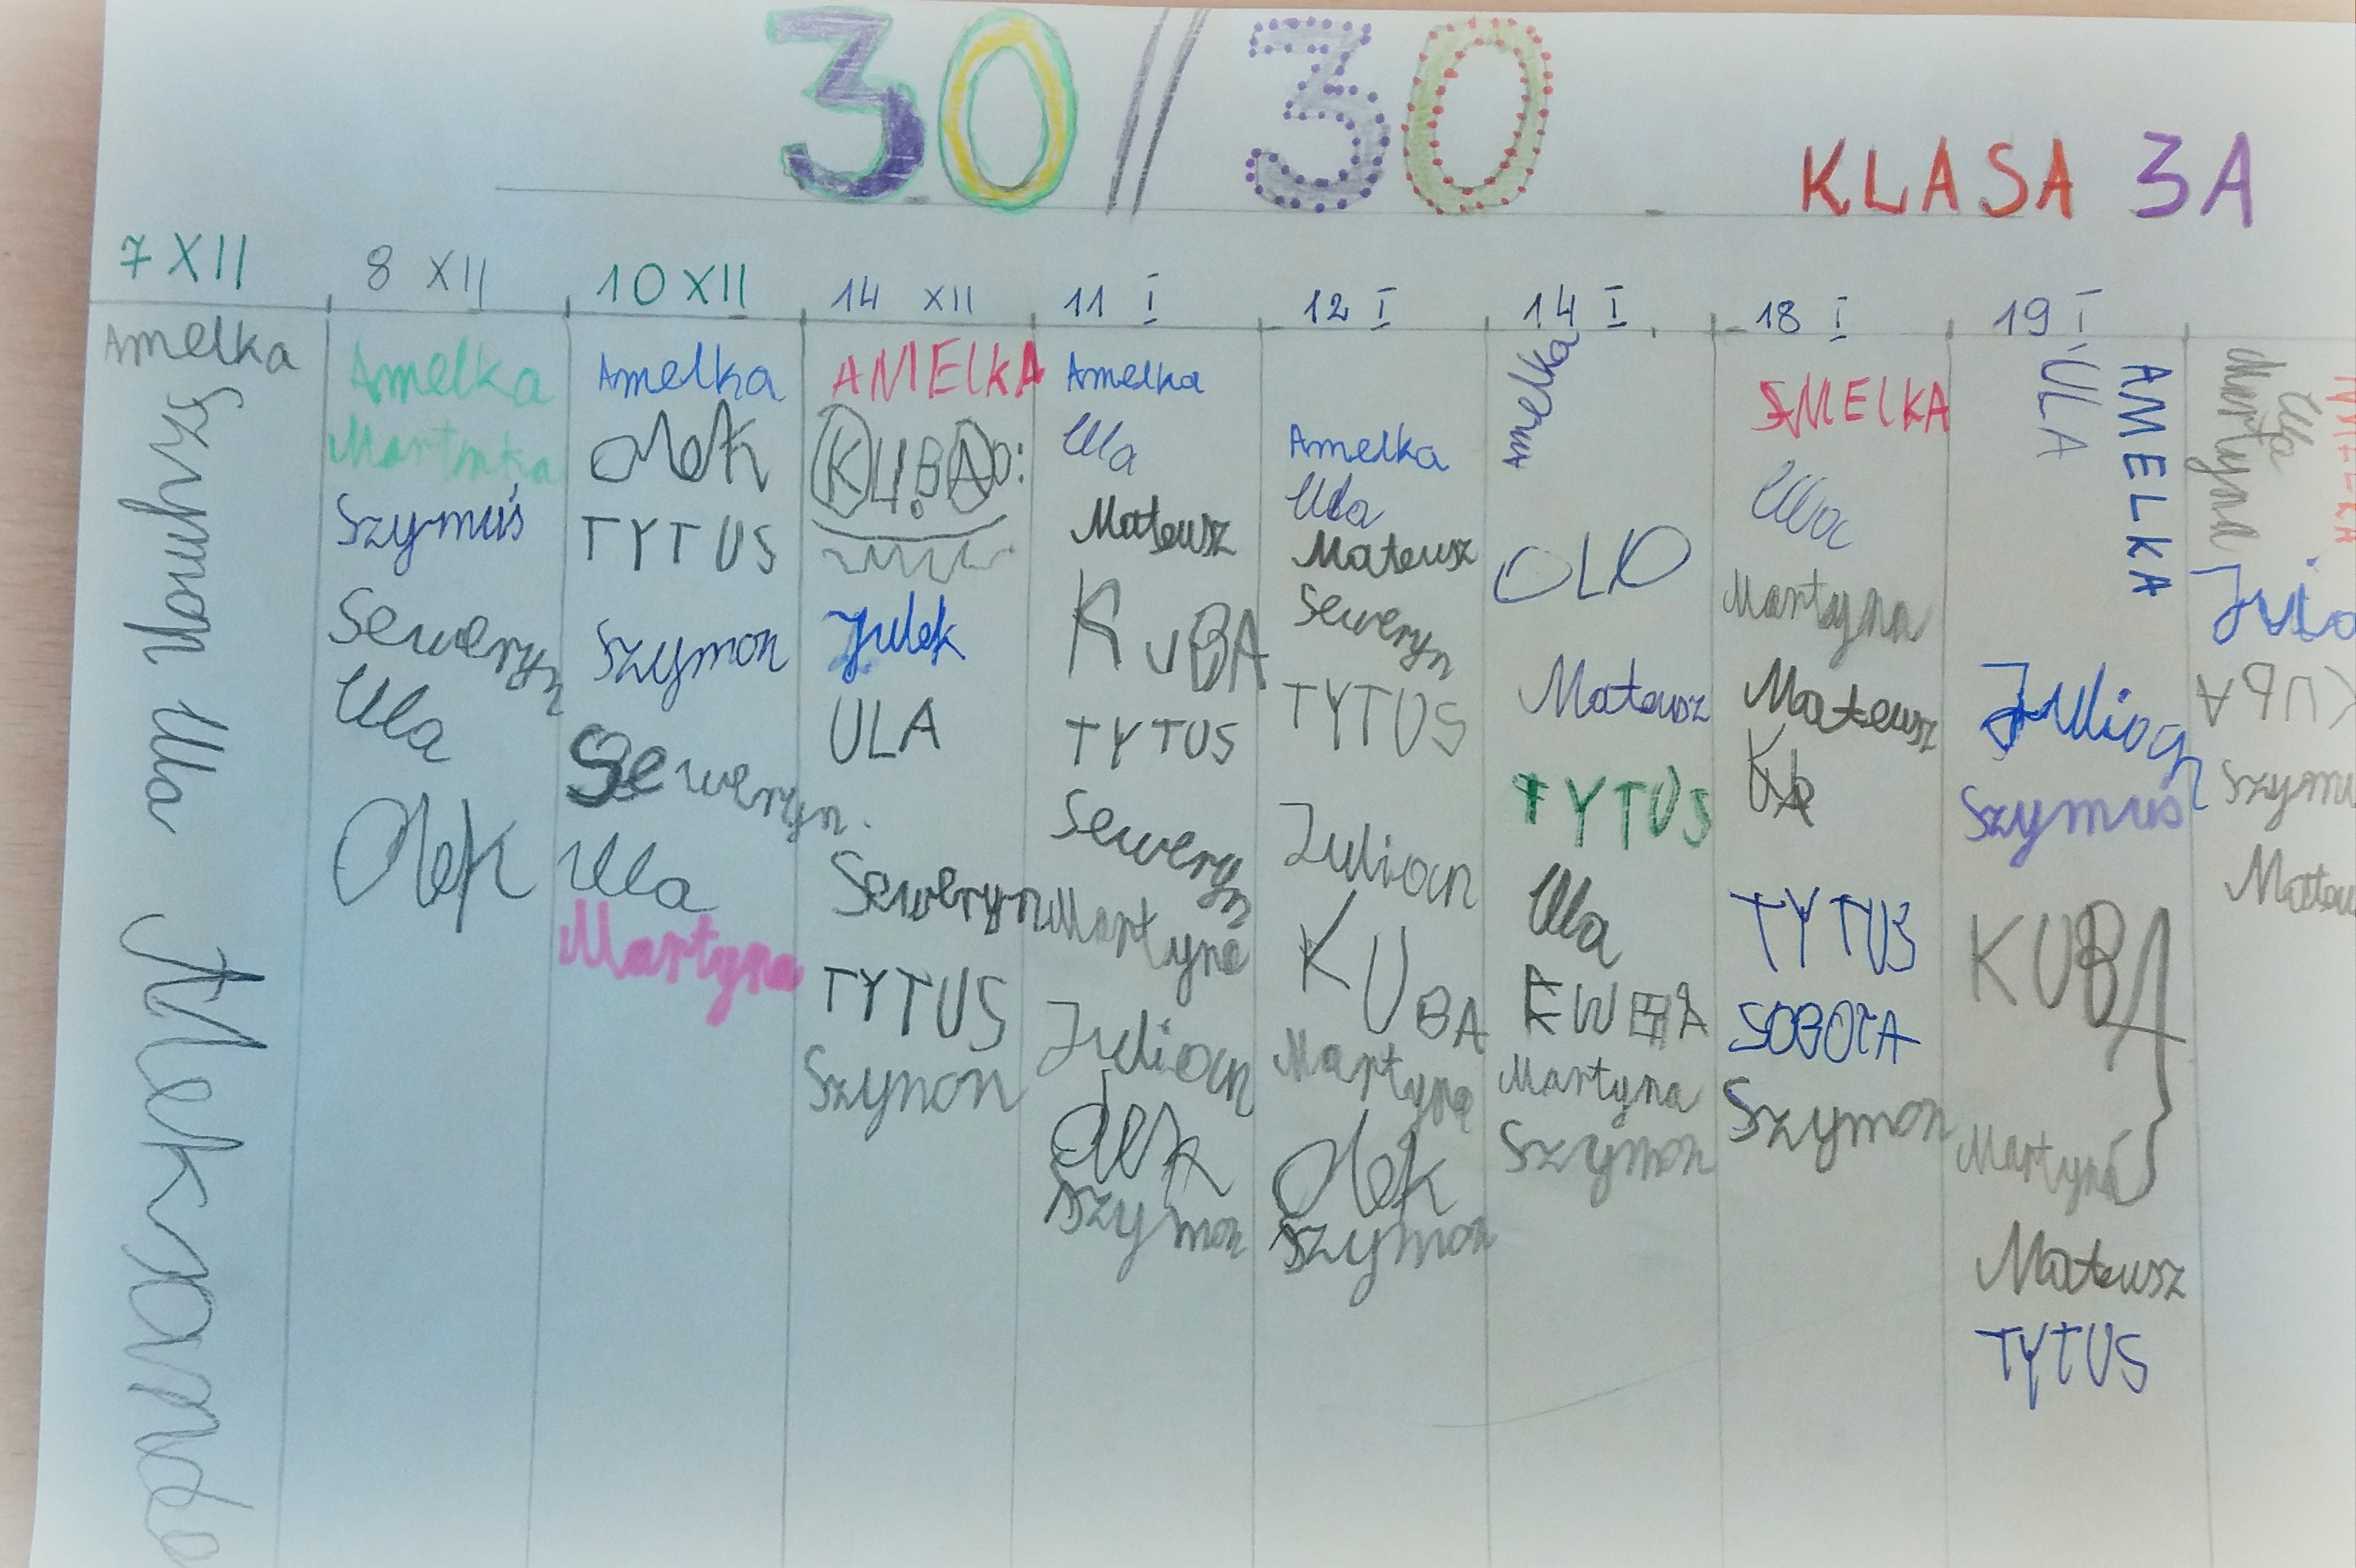 30//30
KLASA 3A
7 XII
8 XII
10 XII
14 XII
11 I
12 I
14 I
18 I
19 I
Amelka
Szymon Ula
Amelka
Martynka
Szymuś
Seweryn
Ula
Olek
Amelka
Olek
TYTUS
Szymon
Seweryn.
Ula
Martyna
AMElKA
KUBA
Julek
ULA
Seweryn
TYTUS
Szymon
Amelka
Ula
Mateusz
KUBA
TYTUS
Seweryn
Martyna
Julian
Olek
Szymon
Amelka
Ula
Mateusz
Seweryn
TYTUS
Julian
KUBA
Martyna
Olek
Szymon
Amelka
OLO
Mateusz
TYTUS
Ula
EWA
Martyna
Szymon
AMElKA
Ula
Martyna
Mateusz
TYTUS
SOBOTA
Szymon
ULA
AMELKA
Julian
Szymuś
KUBA
Martyna
Mateusz
TYTUS
Martyna
Ula
Julia
KUBA
Szymu
Mateu